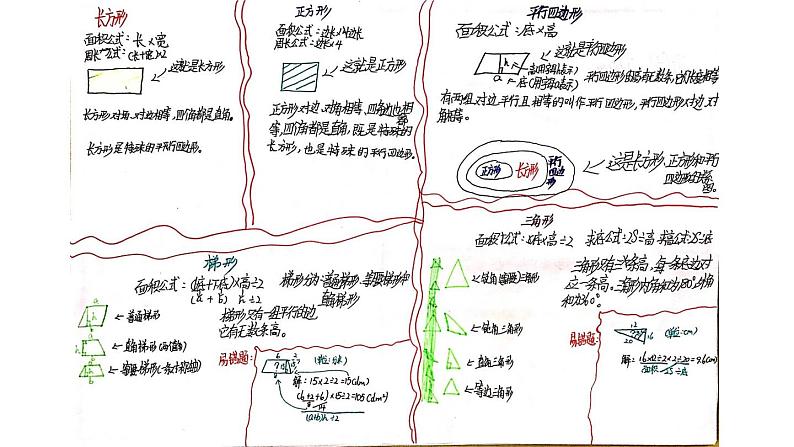 长方形
面积公式:长×宽
周长公式:(长+宽)×2
这就是长方形
长方形对角、对边相等,四个角都是直角。
长方形是特殊的平行四边形。
正方形
面积公式:边长×边长
周长公式:边长×4
这就是正方形
正方形对边、对角相等,四条边也相
等,四个角都是直角,既是特殊的
长方形,也是特殊的平行四边形。
平行四边形
面积公式:底×高
这就是平行四边形
h
a
有两组对边平行且相等的叫作平行四边形,平行四边形对边、对
角相等。
正方形
长方形
平行四边形
这是长方形、正方形和平行
四边形的关系
图。
梯形
面积公式:(上底+下底)×高÷2
(a+b) h÷2
梯形分为:普通梯形、等腰梯形和
直角梯形
梯形只有一组平行的边,
它有无数条高。
普通梯形
直角梯形
等腰梯形
易错题:
解:15×2÷2=15(dm)
三角形
面积公式:底×高÷2 求底公式:2S÷高 求高公式:2S÷底
三角形有三条高,每一条底边对
立一条高。三角形内角和为180°,外角
和为360°。
锐角三角形
钝角三角形
直角三角形
等边三角形
易错题:
12
16
20
(单位:cm)
解:16×12÷2×2÷20=9.6(cm)